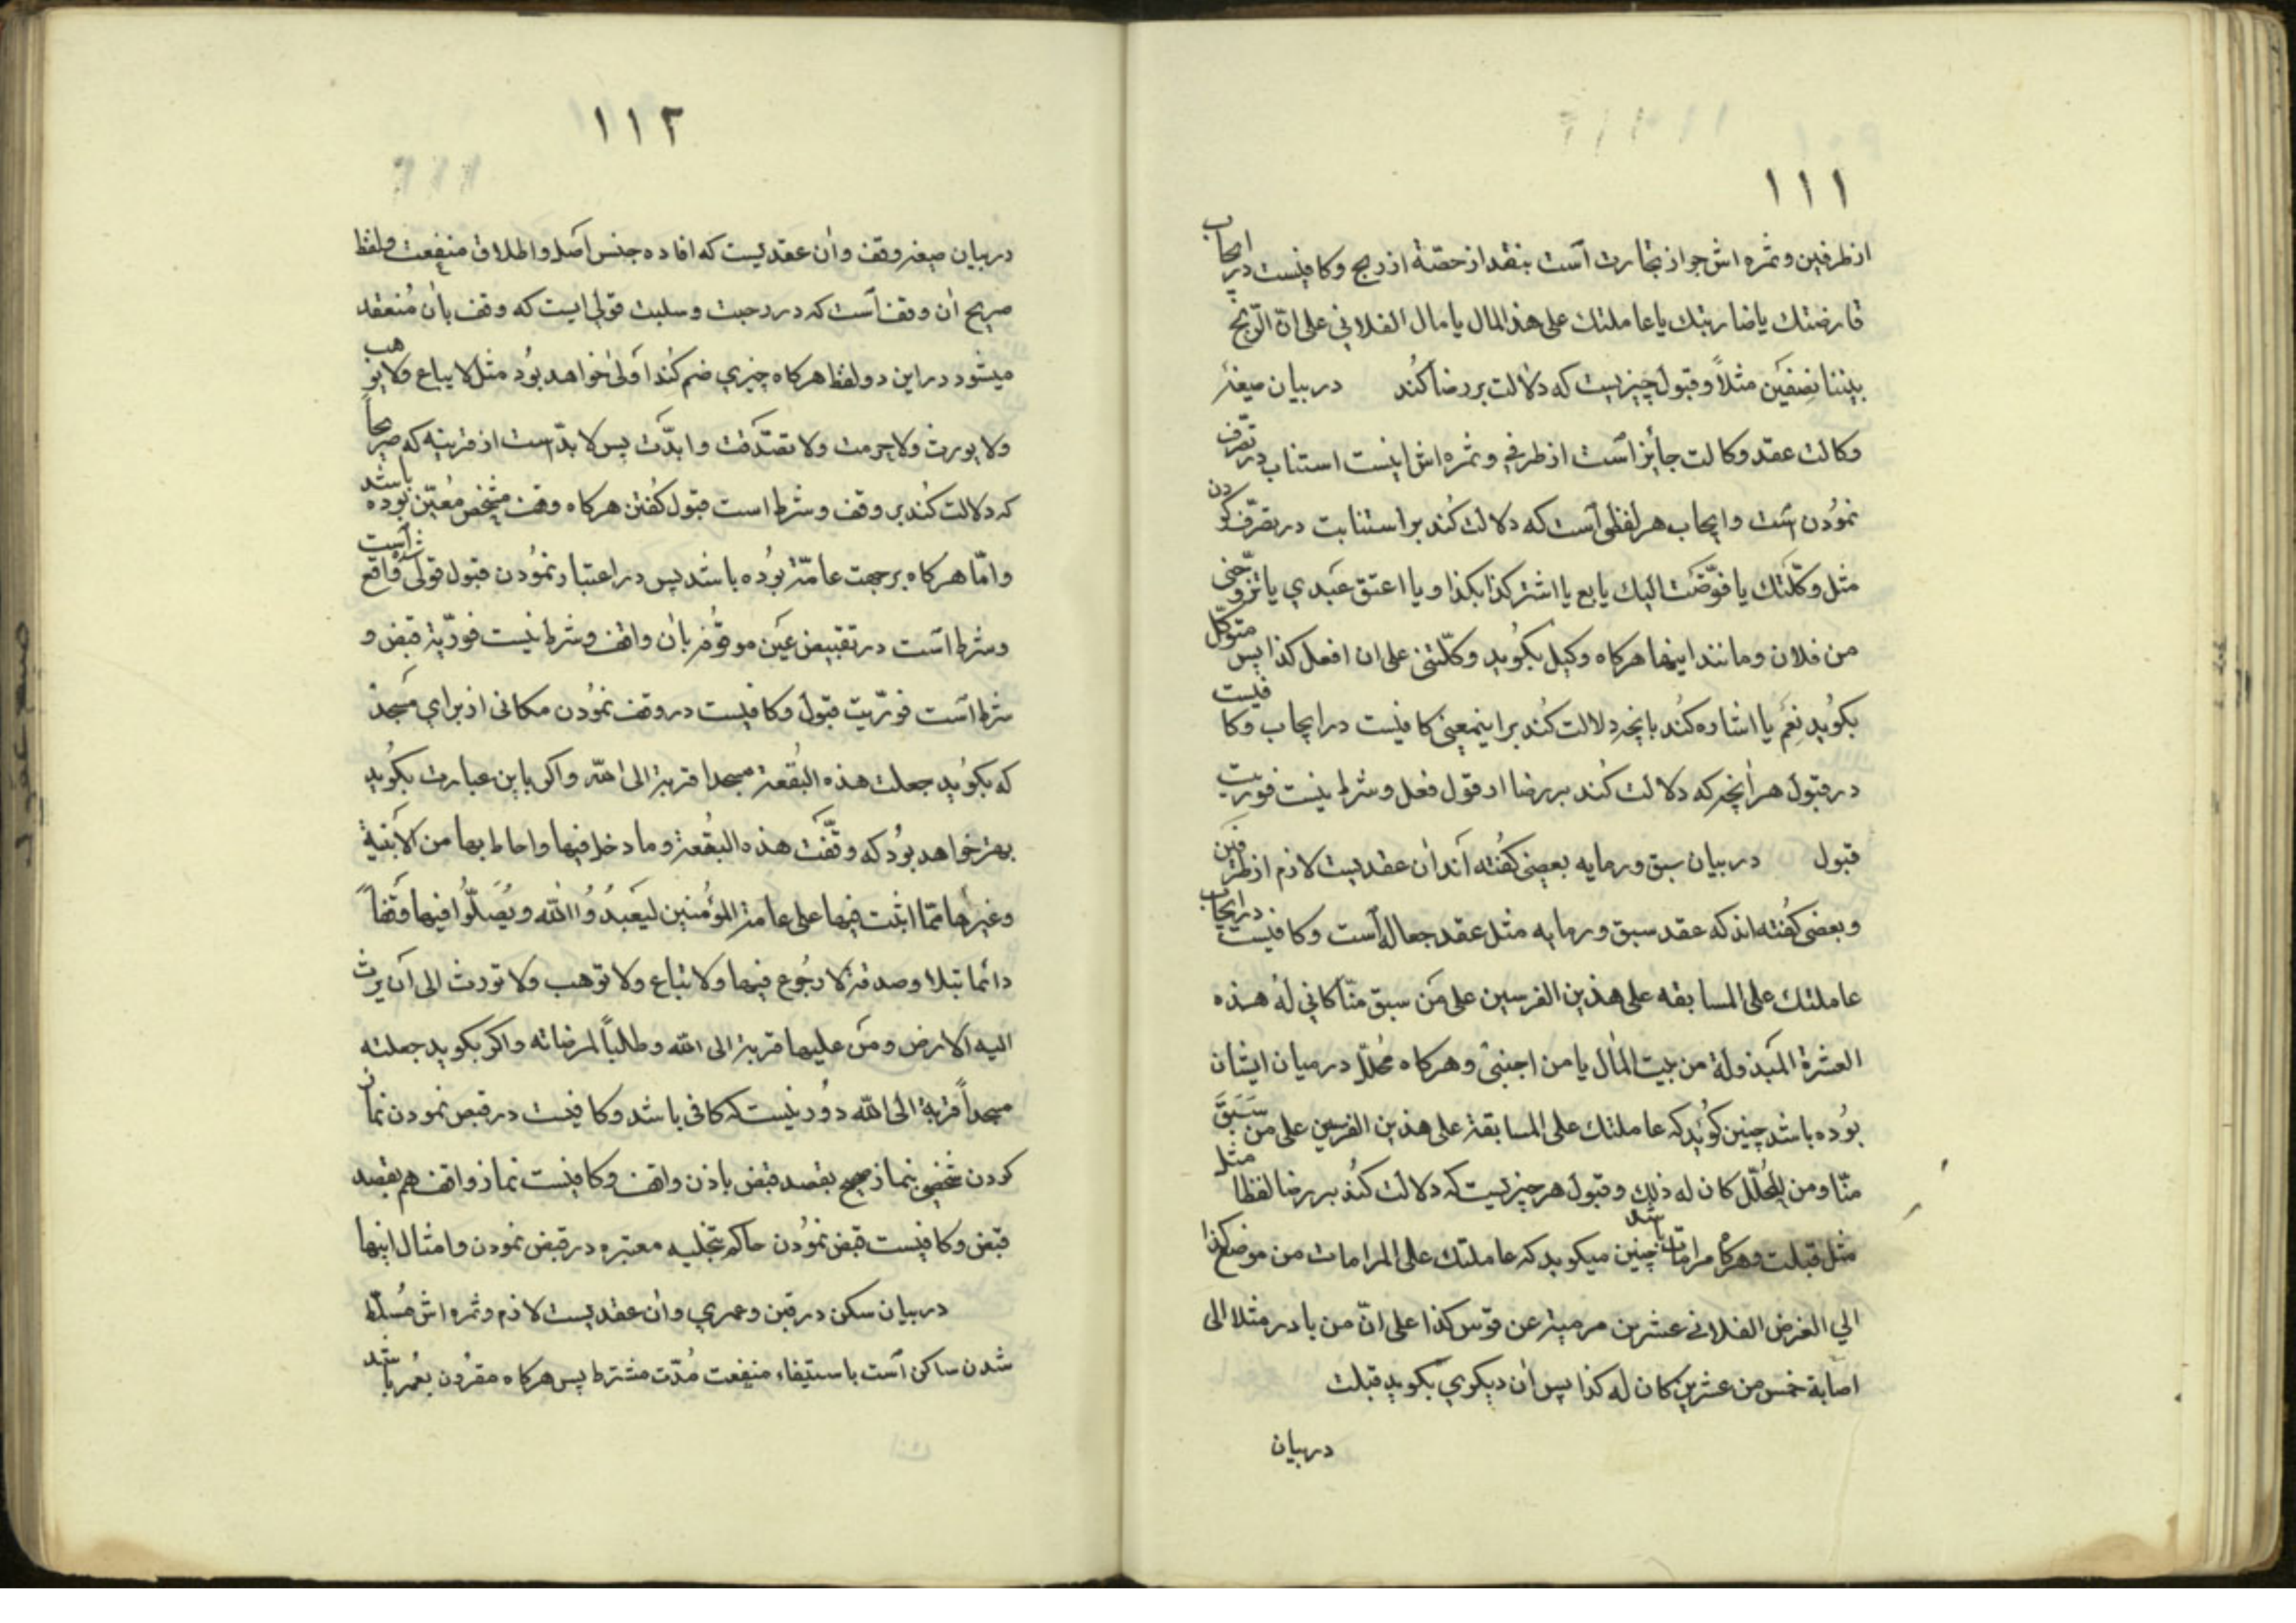 ١١١
از طرفین و ثمره اش جواز تجارت است بنقد از حصّة از ربح و کافیست در ایجاب
قارضتك یا ضاربتك یا عاملتك علی هذا المال یا مال الفلانی علی انّ الرّبح
بیننا نصفین مثلاً و قبول چیزیست که دلالت بر رضا کُند در بیان صیغهٔ
وکالت عقد وکالت جائز است از طرفی و ثمره اش اینست استناب در تصرّف
نمُودن است و ایجاب هر لفظی است که دلالت کُند بر استنابت در تصرّف کردن
مثل وکّلتك یا فوّضت الیك یا بع یا اشتر کذا بکذا و یا اعتق عبدی یا تزوّجنی
من فلان و مانند اینها هرکاه وکیل بکوید وکّلتنی علی ان افعل کذا پس متوکّل
بکوید نعم یا اشاره کُند بانچه دلالت کُند بر اینمعنی کافیست در ایجاب و کافیست
در قبول هر انچه که دلالت کُند بر رضا از قول فعل و شرط نیست فوریت
قبول در بیان سبق و رمایه بعضی کفته اند ان عقدیست لازم از طرفین
و بعضی کُفته اند که عقد سبق و رمایه مثل عقد جعاله است و کافیست در ایجاب
عاملتك علی المسابقه علی هذین الفرسین علی من سبق منّا کانی له هذه
العشرة المبذولة من بیت المال یا من اجنبیّ و هرکاه مُحلّل در میان ایشان
بوُده باشد چنین کوید که عاملتك علی المسابقة علی هذین الفرسین علی من سَبَقَ
منّا و من المُحلّل کان له ذلك و قبول هر چیزیست که دلالت کُند بر رضا لفظا مثل
مثل قبلت و هرکاه مرامات باشد چنین میکوید که عاملتك علی المرامات من موضع کذا
الی الغرض الفلانی عشرین مرمیة عن قوس کذا علی انّ من بادر مثلا الی
اصابة خمس من عشرین کان له کذا پس ان دیکری بکوید قبلت
در بیان
١١٢
در بیان صیغه وقف و ان عقدیست که افاده جنس اصل و اطلاق منفعت و لفظ
صریح ان وقف است که در حبت و سلبت قولی ایست که وقف بان مُنعقد
میشود در این دو لفظ هرکاه چیزی ضم کُند اولی خواهد بوُد مثل لا یباع ولا یوهب
ولا یورث ولا حرمت ولا تصدّقت و ابدّت پس لا بدّ است از قرینه که صریحاً
که دلالت کُند بر وقف و شرط است قبول کُفتن هرکاه وقف مشخص مُعیّن بوده باشد
و امّا هرکاه بر جهت عامّة بوُده باشد پس در اعتبار نموُدن قبول قولی واقع است
و شرط است در تقبیض عین موقوُفه بان واقف و شرط نیست فوریّة قبض و
شرط است فوریّت قبول و کافیست در وقف نموُدن مکانی از برای مسجد
که بکوید جعلت هذه البُقعة مسجدا قربة الی الله و اکر باین عبارت بکوید
بهتر خواهد بوُد که وقّفت هذه البُقعة و ما دخل فیها و احاط بها من الابنیة
و غیرها ممّا اثبت فیها علی عامة المؤمنین لیعبدُوُا الله و یُصلّوُا فیها وقفاً
دائما تبلا و صدقة لا رجُوع فیها ولا تباع ولا توهب ولا تورث الی ان یرث
الیه الارض و من علیها قربة الی الله و طلباً لمرضاته و اکر بکوید جعلته
مسجداً قربة الی الله دوُر نیست که کافی باشد و کافیست در قبض نمودن نماز
کردن شخصی بنماز صحیح بقصد قبض باذن واقف و کافیست نماز واقف هم بقصد
قبض و کافیست قبض نموُدن حاکم بتخلیه معتبره در قبض نمودن و امثال اینها
در بیان سکن در قبن و عمری و ان عقدیست لازم و ثمره اش مُسلّط
شدن ساکن است باستیفاء منفعت مُدّت مشترط پس هرکاه مقرُون بعُمر باشد